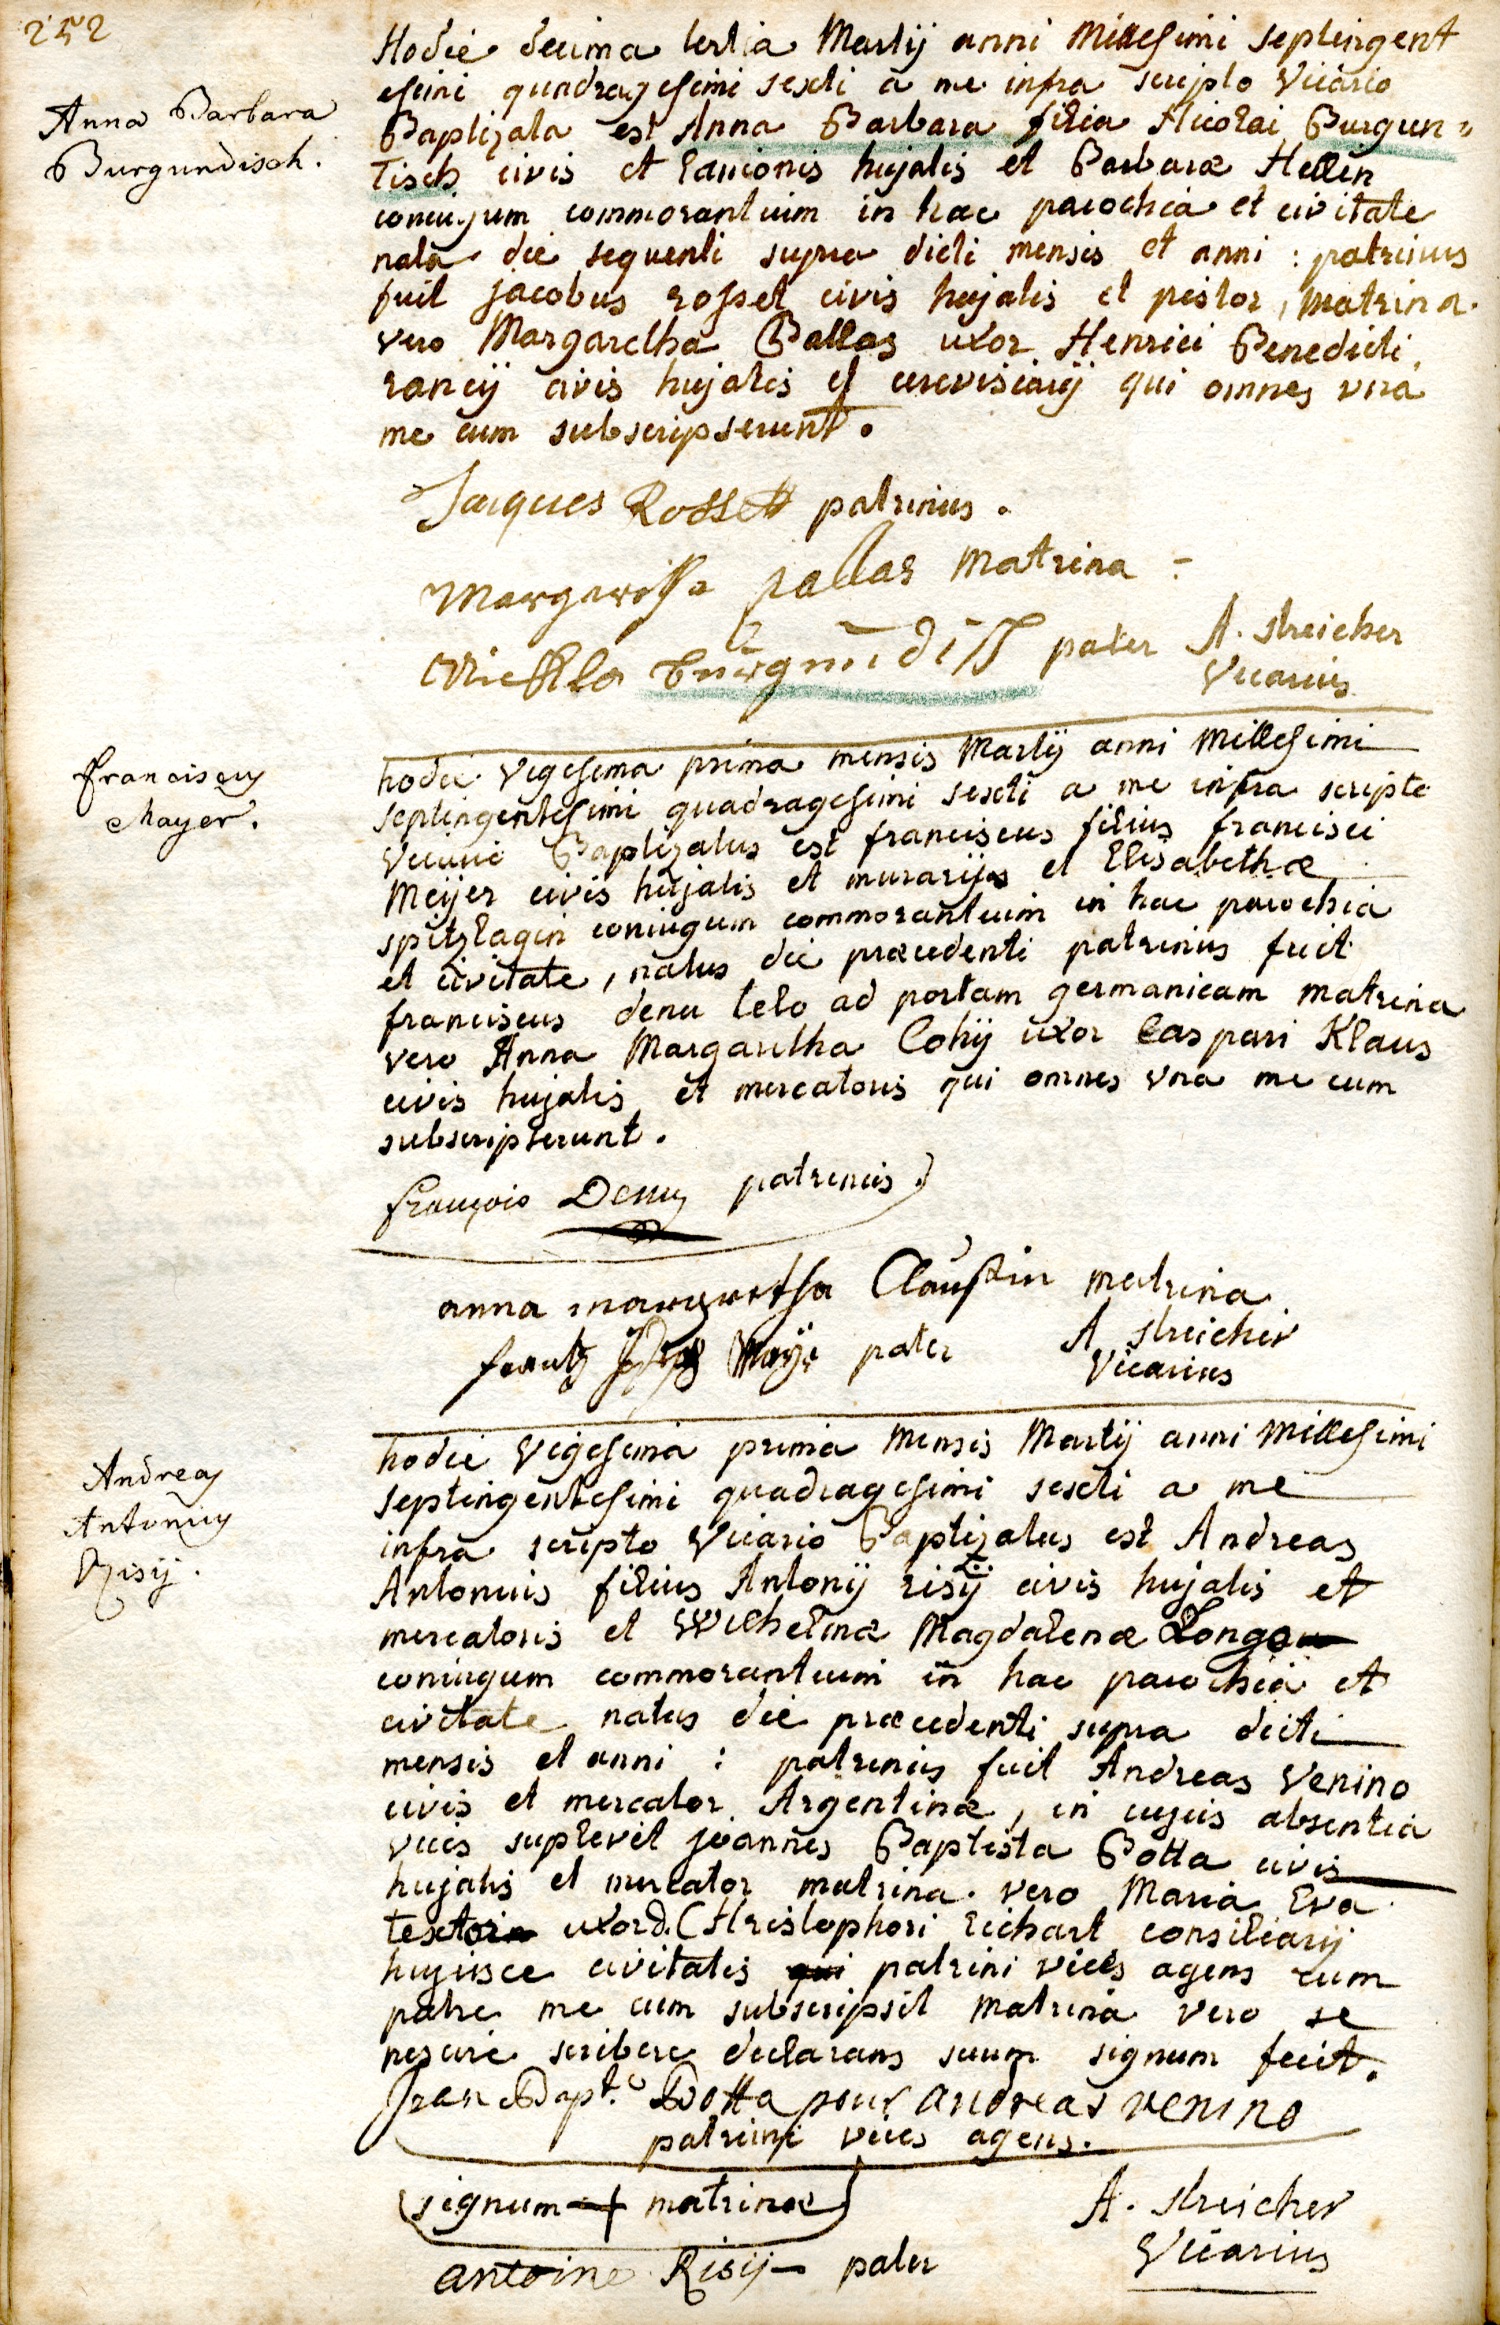 252
Anna Barbara
Burgundisch.
Hodie decima tertia Martij anni Millesimi septingent
esimi quadragesimi sexti a me infra scripto Vicario
Baptizata est Anna Barbara filia Nicolai Burgun=
Tisch civis et lanionis hujatis et Barbaræ Hellin
coniugum commorantium in hac parochia et civitate
nata die sequenti supra dicti mensis et anni : patrinus
fuit jacobus rosset civis hujatis et pistor, Matrina
vero Margaretha Ballas uxor Henrici Benedicti
rancij civis hujatis et cerevisiarij qui omnes vna
me cum subscripserunt.
Jacques Rossett patrinus.
Margaretha pallas Matrina
Burgundisch pater A. streicher
Vicarius
Franciscus
Mayer.
hodie vigesima prima mensis Martij anni Millesimi
septingentesimi quadragesimi sexti a me infra scripto
Vicario Baptizatus est franciscus filius francisci
Meijer civis hujatis et murarij et Elisabethæ
spitzlagin coniugum commorantium in hac parochia
et civitate, natus die præcedenti patrinus fuit
franciscus denu telo ad portam germanicam matrina
vero Anna Margaretha Cohij uxor Caspari Klaus
civis hujatis et mercatoris qui omnes vna me cum
subscripserunt.
françois Denu patrinus
anna margretha Claussin matrina
frantz Meyer pater A streicher
Vicarius
Andreas
Antonius
Risij.
hodie vigesima prima Mensis Martij anni Millesimi
septingentesimi quadragesimi sexti a me
infra scripto Vicario Baptizatus est Andreas
Antonius filius Antonij risij civis hujatis et
mercatoris et Wilhelmæ Magdalenæ Longo
coniugum commorantium in hac parochia et
civitate natus die præcedenti supra dicti
mensis et anni : patrinus fuit Andreas Venino
civis et mercator Argentinæ, in cujus absentia
vices suplevit joannes Baptista Botta civis
hujatis et mercator matrina vero Maria Eva
textor uxor d. CHristophori richart consiliarij
hujusce civitatis qui patrini vices agens cum
patre me cum subscripsit Matrina vero se
nescire scribere declarans suum signum fecit.
Jean Bapt. Botta pour andreas venino
patrini vices agens.
signum + matrinæ A. streicher
antoine Risij pater Vicarius